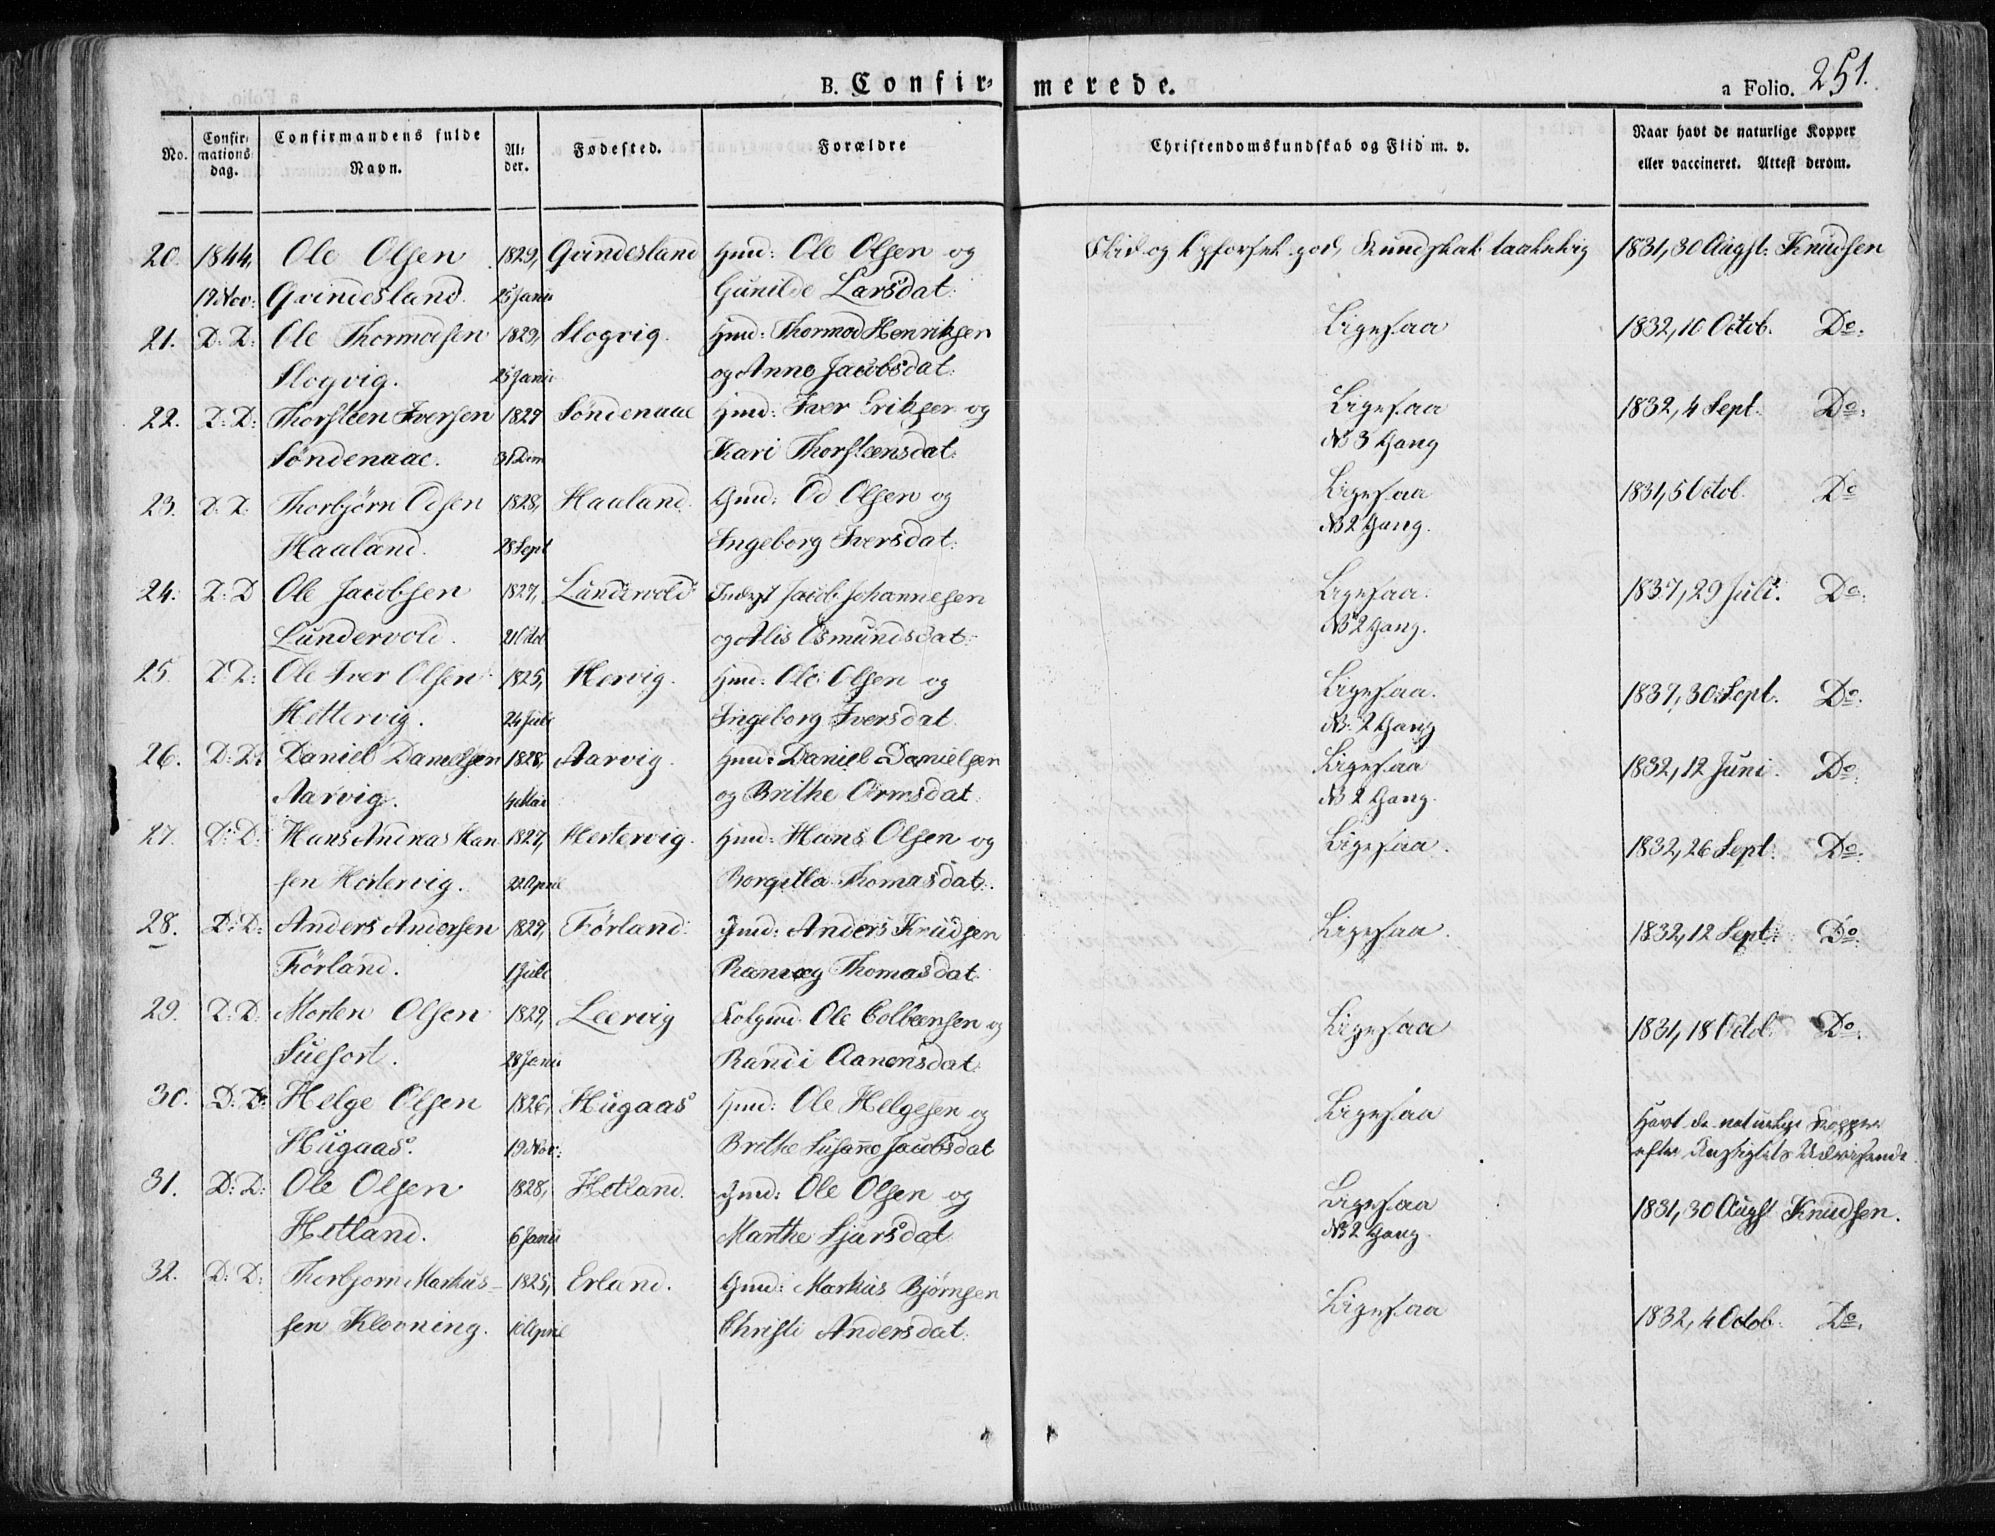 B. Confirmerede.
a Folio. 251.
No.
Confirmations dag.
Confirmandens fulde Navn.
Alder.
Fødested.
Forældre
Christendomskundskab og Flid m. v.
Naar havt de naturlige Kopper eller vaccineret. Attest derom.
20. 1844, Ole Olsen 1829, Gvindesland Gmd: Ole Olsen og Flid og Opførsel god, Kundskab taalelig 1831, 30 Augst: Knudsen
17 Nov: Gvindesland. 25 Janu Gunilde Larsdat:
21. D: D: Ole Thormodsen 1829, Slogvig. Gmd: Thormod Henriksen Ligesaa 1832, 10 Octob. Do.
Slogvig. 25 Janu og Anne Jacobsdat:
22. D: D: Thorsteen Iversen 1827 Söndenaae Gmd: Iver Eriksen og Ligesaa 1832, 4 Sept. Do.
Söndenaae. 31 Dem Kari Thorsteensdat: NB 3 Gang
23. D. D. Thorbjörn Odsen 1828, Haaland. Gmd: Od Olsen og Ligesaa 1831, 5 Octob. Do
Haaland. 28 Sept Ingeborg Iversdat: NB 2 Gang.
24. D: D Ole Jacobsen 1827, Lundevold Inderst Jacob Johannesen Ligesaa. 1837, 29 Juli. Do.
Lundervold. 21 Octob og Alis Osmundsdat: NB 2 Gang.
25. D D: Ole Iver Olsen 1825, Hervig. Gmd: Ole Olsen og Ligesaa. 1837, 30 Sept. Do.
Hettervig. 24 Juli Ingeborg Iversdat. NB. 2 Gang
26. D: D: Daniel Danielsen 1828, Aarvig. Gmd: Daniel Danielsen Ligesaa 1832, 12 Juni. Do.
Aarvig. 4 Mai og Brithe Ormsdat. NB 2 Gang.
27. D: D: Hans Andreas Han 1827, Hertervig. Gmd: Hans Olsen og Ligesaa. 1832, 26 Sept: Do.
sen Hertervig. 22 April Borgilla Thomasdat:
28. D: D: Anders Andersen 1829, Förland: Gmd: Anders Knudsen Ligesaa. 1832, 12 Sept: Do.
Förland. 1 Juli Ranveg Thomasdat
29. D: D: Morten Olsen 1829, Leervig Ole Colbeensen og Ligesaa 1831, 18 Octob: Do.
Suefort. 28 Janu Randi Aanensdat:
30. D: D: Helge Olsen 1826, Hugaas Gmd: Ole Helgesen og Ligesaa Havt de naturlige Kopper
Hugaas. 19 Nov: Brithe Susane Jacobsdat efter Ansigtets Udvisende
31. D: D: Ole Olsen 1828, Hetland. Gmd: Ole Olsen og Ligesaa 1831, 30 Augst Knudsen.
Hetland. 6 Janu Marthe Sjursdat NB 2 Gang.
32. D: D: Thorbjorn Markus- 1825, Erland. Gmd: Markus Bjørnsen Ligesaa 1832, 4 Octob. Do.
sen Klovning. 10 April Christi Andersdat: